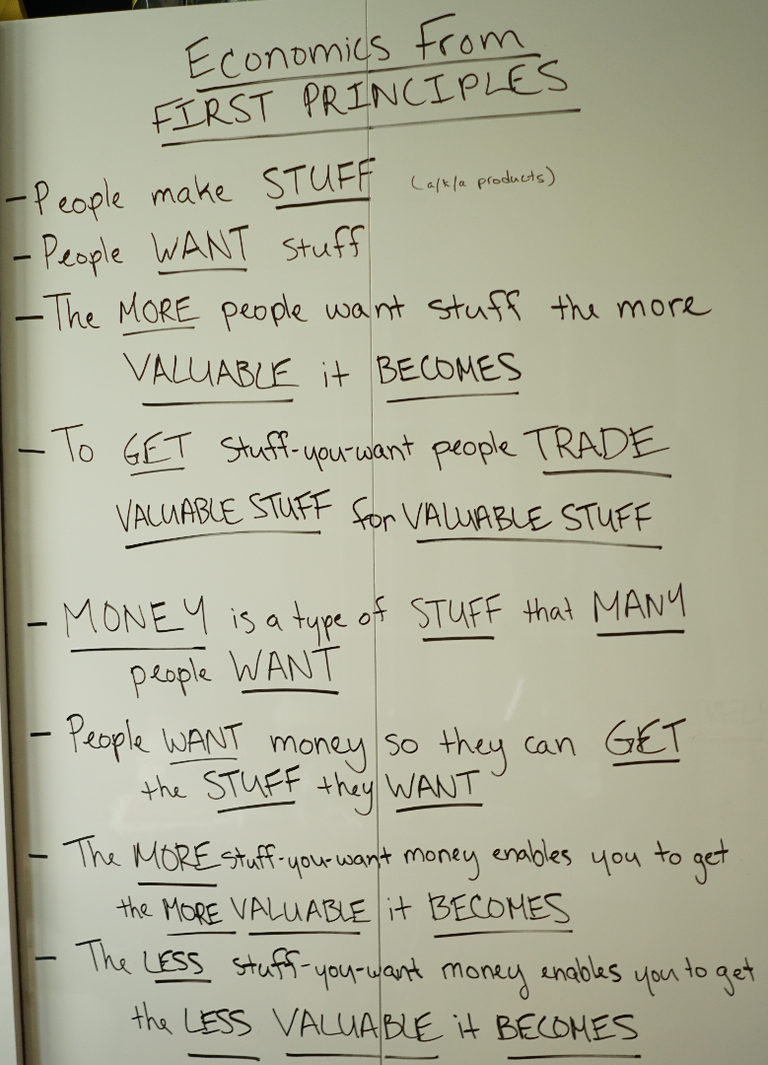 Economics From
FIRST PRINCIPLES
- People make STUFF (a/k/a products)
- People WANT stuff
- The MORE people want stuff the more
VALUABLE it BECOMES
- To GET stuff-you-want people TRADE
VALUABLE STUFF for VALUABLE STUFF
- MONEY is a type of STUFF that MANY
people WANT
- People WANT money so they can GET
the STUFF they WANT
- The MORE stuff-you-want money enables you to get
the MORE VALUABLE it BECOMES
- The LESS stuff-you-want money enables you to get
the LESS VALUABLE it BECOMES